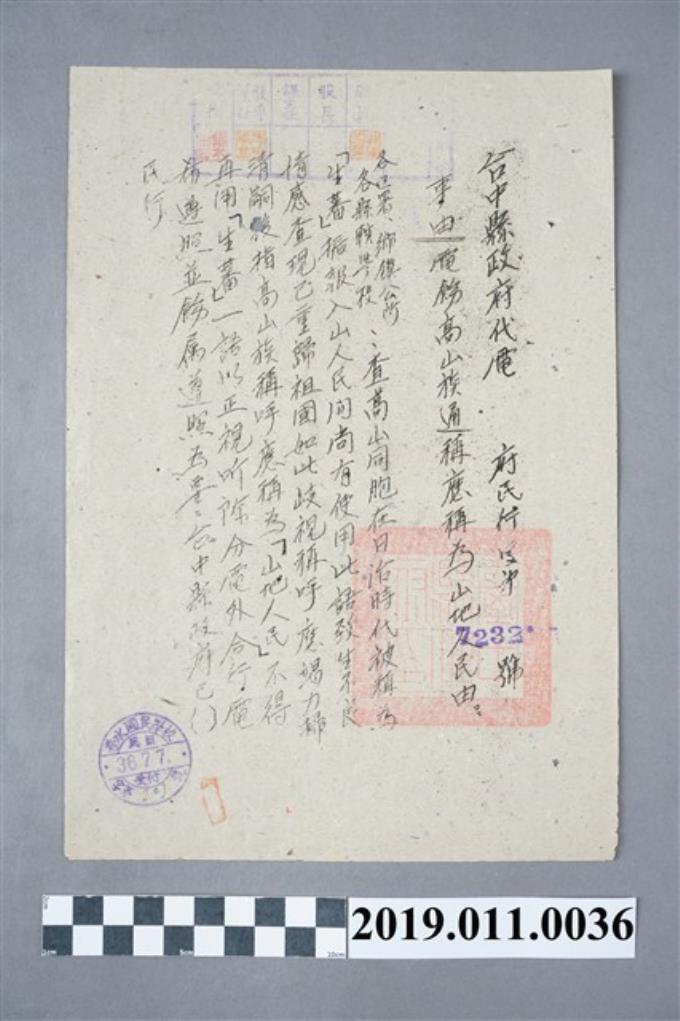 台中縣政府代電 府民行 第 號
7232
事由 電飭高山族通稱應稱為山地人民由。
各區署、鄉鎮公所
各縣轄學校
查高山同胞在日治時代被稱為
「生蕃」据報入山人民間尚有使用此語致生不良
情感查現已重歸祖国如此歧視稱呼應竭力
清嗣後指高山族稱呼應稱為「山地人民」不得
再用「生蕃」一語以正視听除分電外合行電
希遵照並飭属遵照為要台中縣政府
民行
股長
國民學校
36.7.7.
受付
0cm 5cm 10cm
2019.011.0036